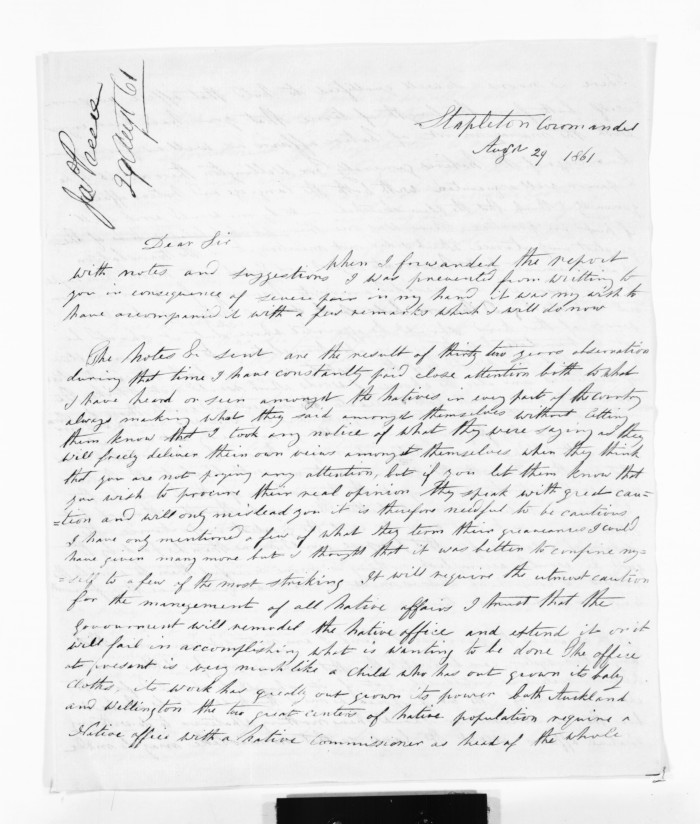 Jas Preece
29 Augt 61
Stapleton Coromandel
Augst 29 1861
Dear Sir
When I forwarded the report
with notes and suggestions I was prevented from writting to
you in consequence of severe pain in my hand it was my wish to
have accompanied it with a few remarks which I will do now
The Notes &c sent are the result of thirty two years observation
during that time I have constantly paid close attention both to what
I have heard or seen amongst the Natives in every part of the Country
always marking what they said amongst themselves without letting
them know that I took any notice of what they were saying as they
will freely deliver their own veiws amongst themselves when they think
that you are not paying any attention, but if you let them know that
you wish to procure their real opinion they speak with great cau=
=tion and will only mislead you it is therefore needful to be cautious
I have only mentioned a few of what they term their greaveances I could
have given many more but I thought that it was better to confine my=
=self to a few of the most striking It will require the utmost caution
for the management of all Native affairs I trust that the
government will remodel the Native office and extend it or it
will fail in accomplishing what is wanting to be done The office
at present is very much like a child who has out grown its baby
cloths, its work has greatly out grown its power both Auckland
and Wellington the two great centers of Native population require a
Native office with a Native Commissioner as head of the whole